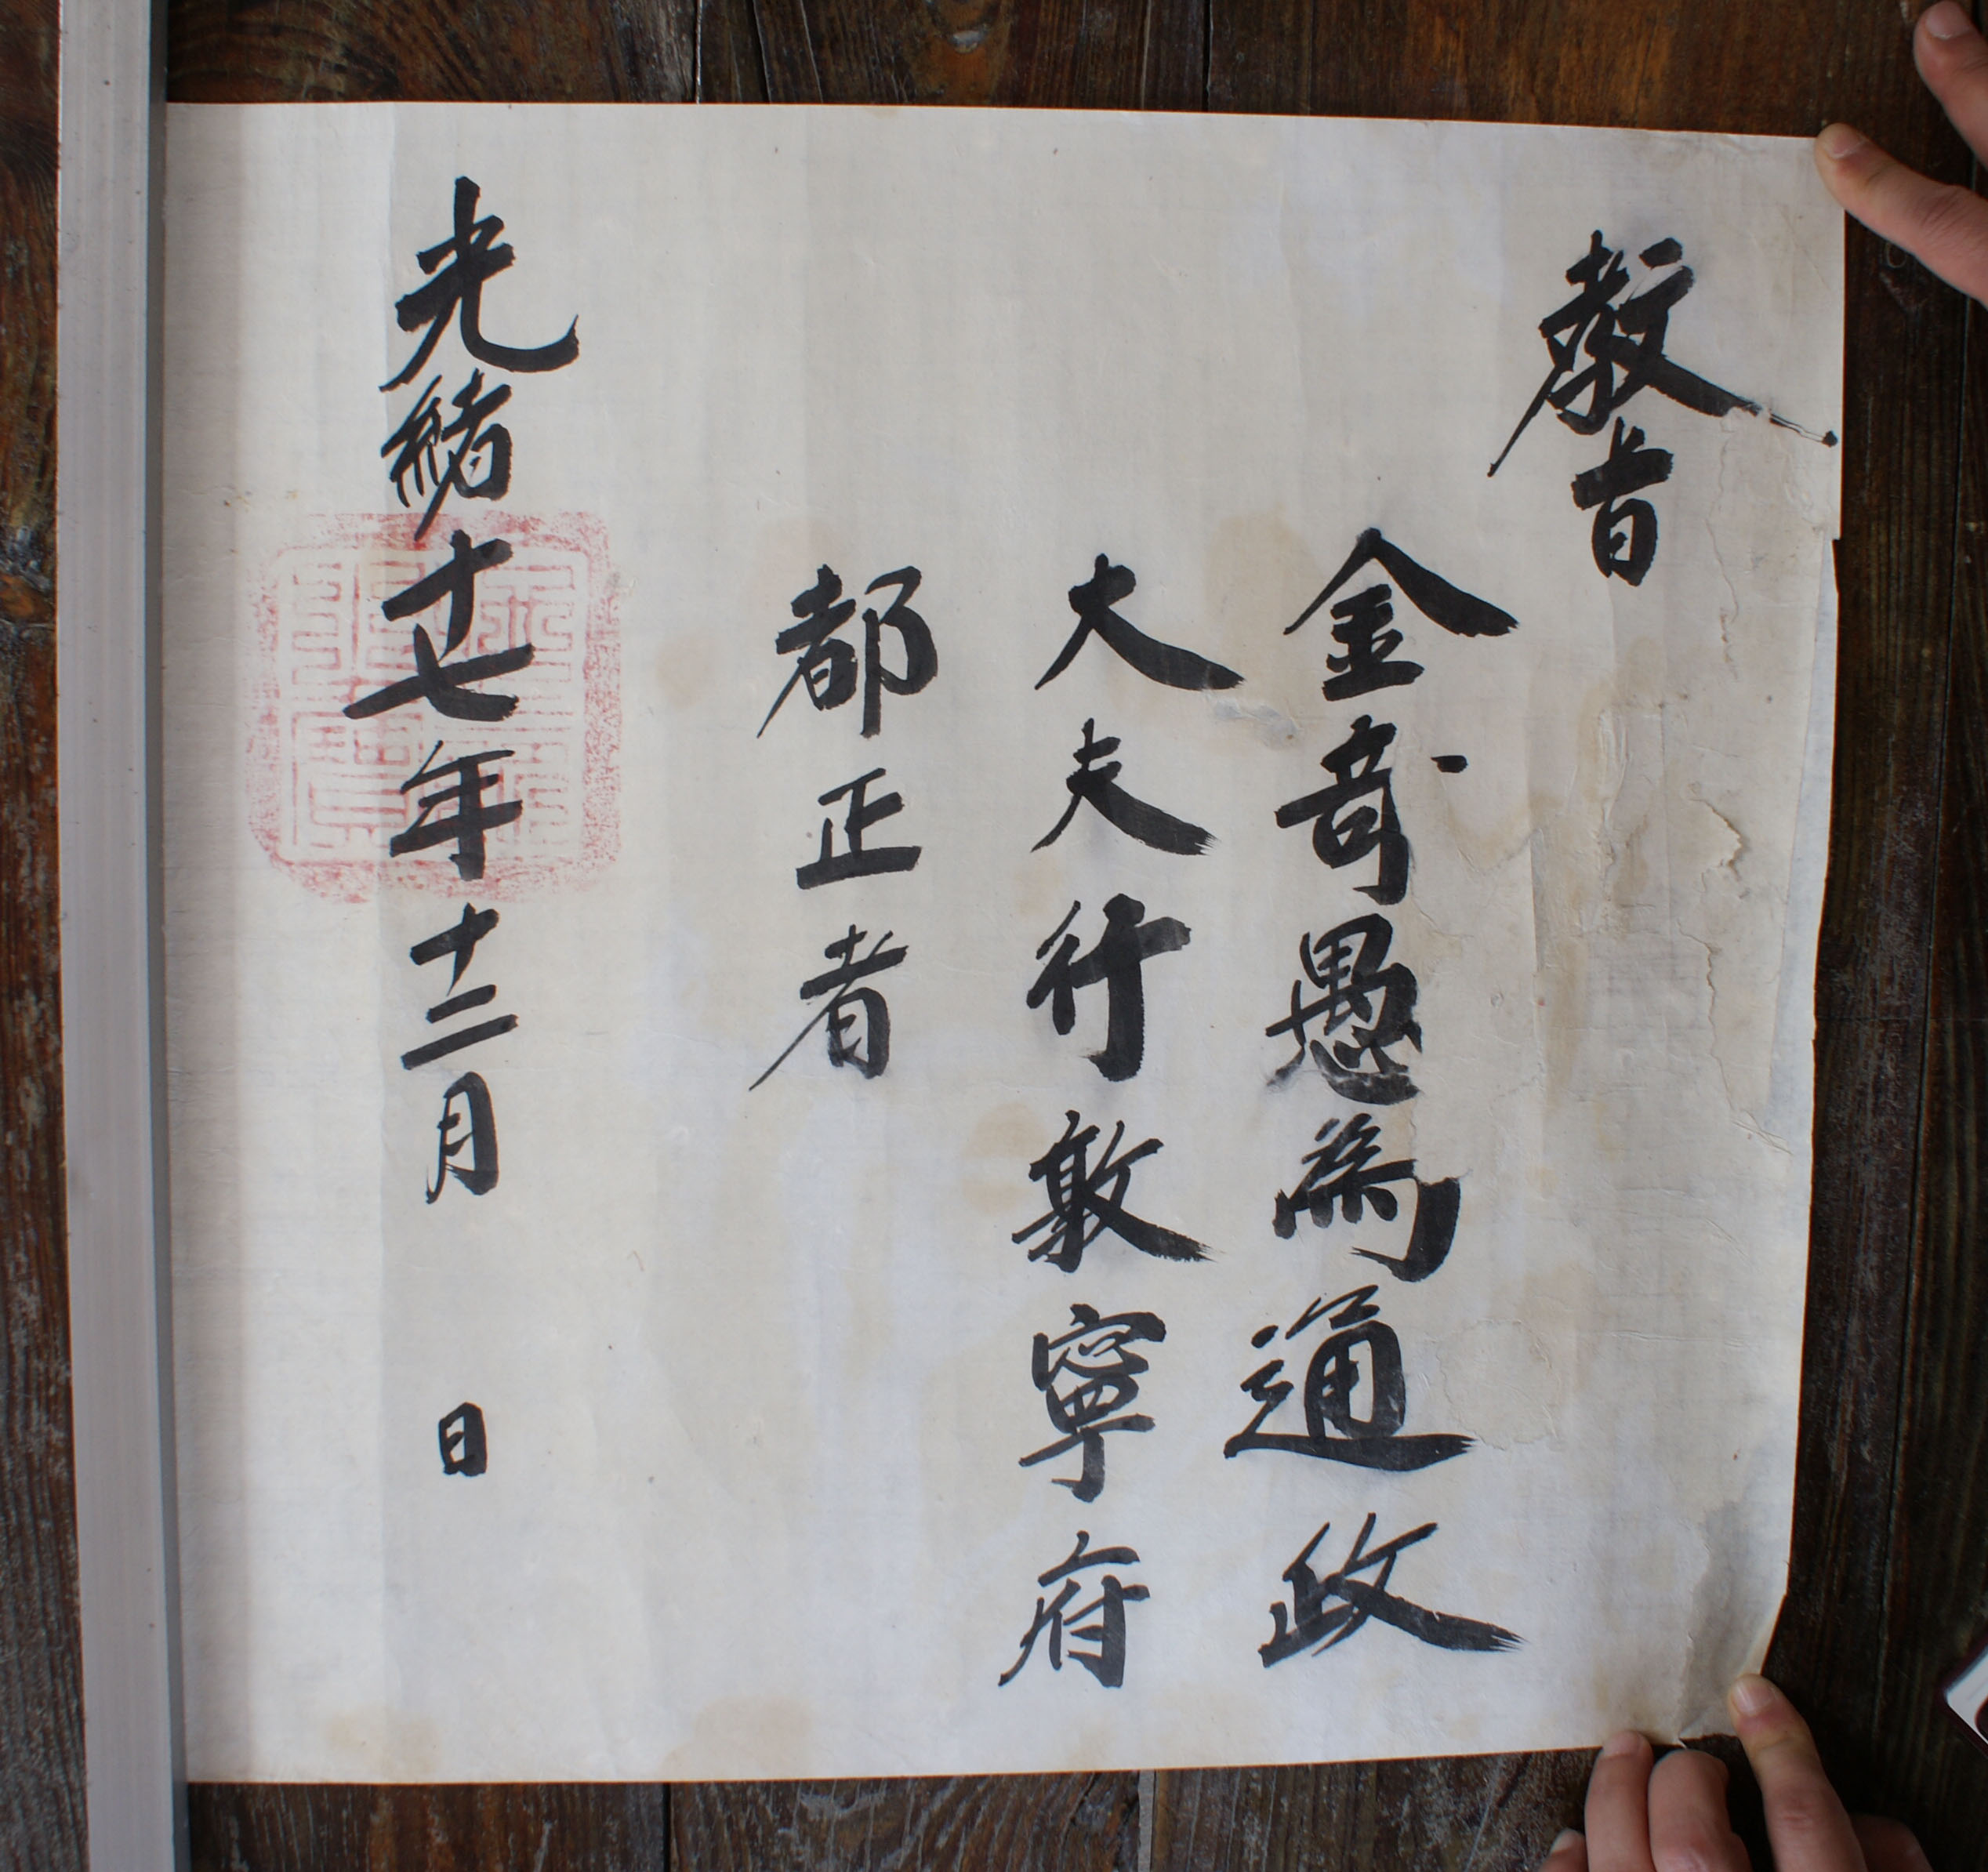 敎旨
金奇愚爲通政
大夫行敦寧府
都正者
光緖十七年十二月 日